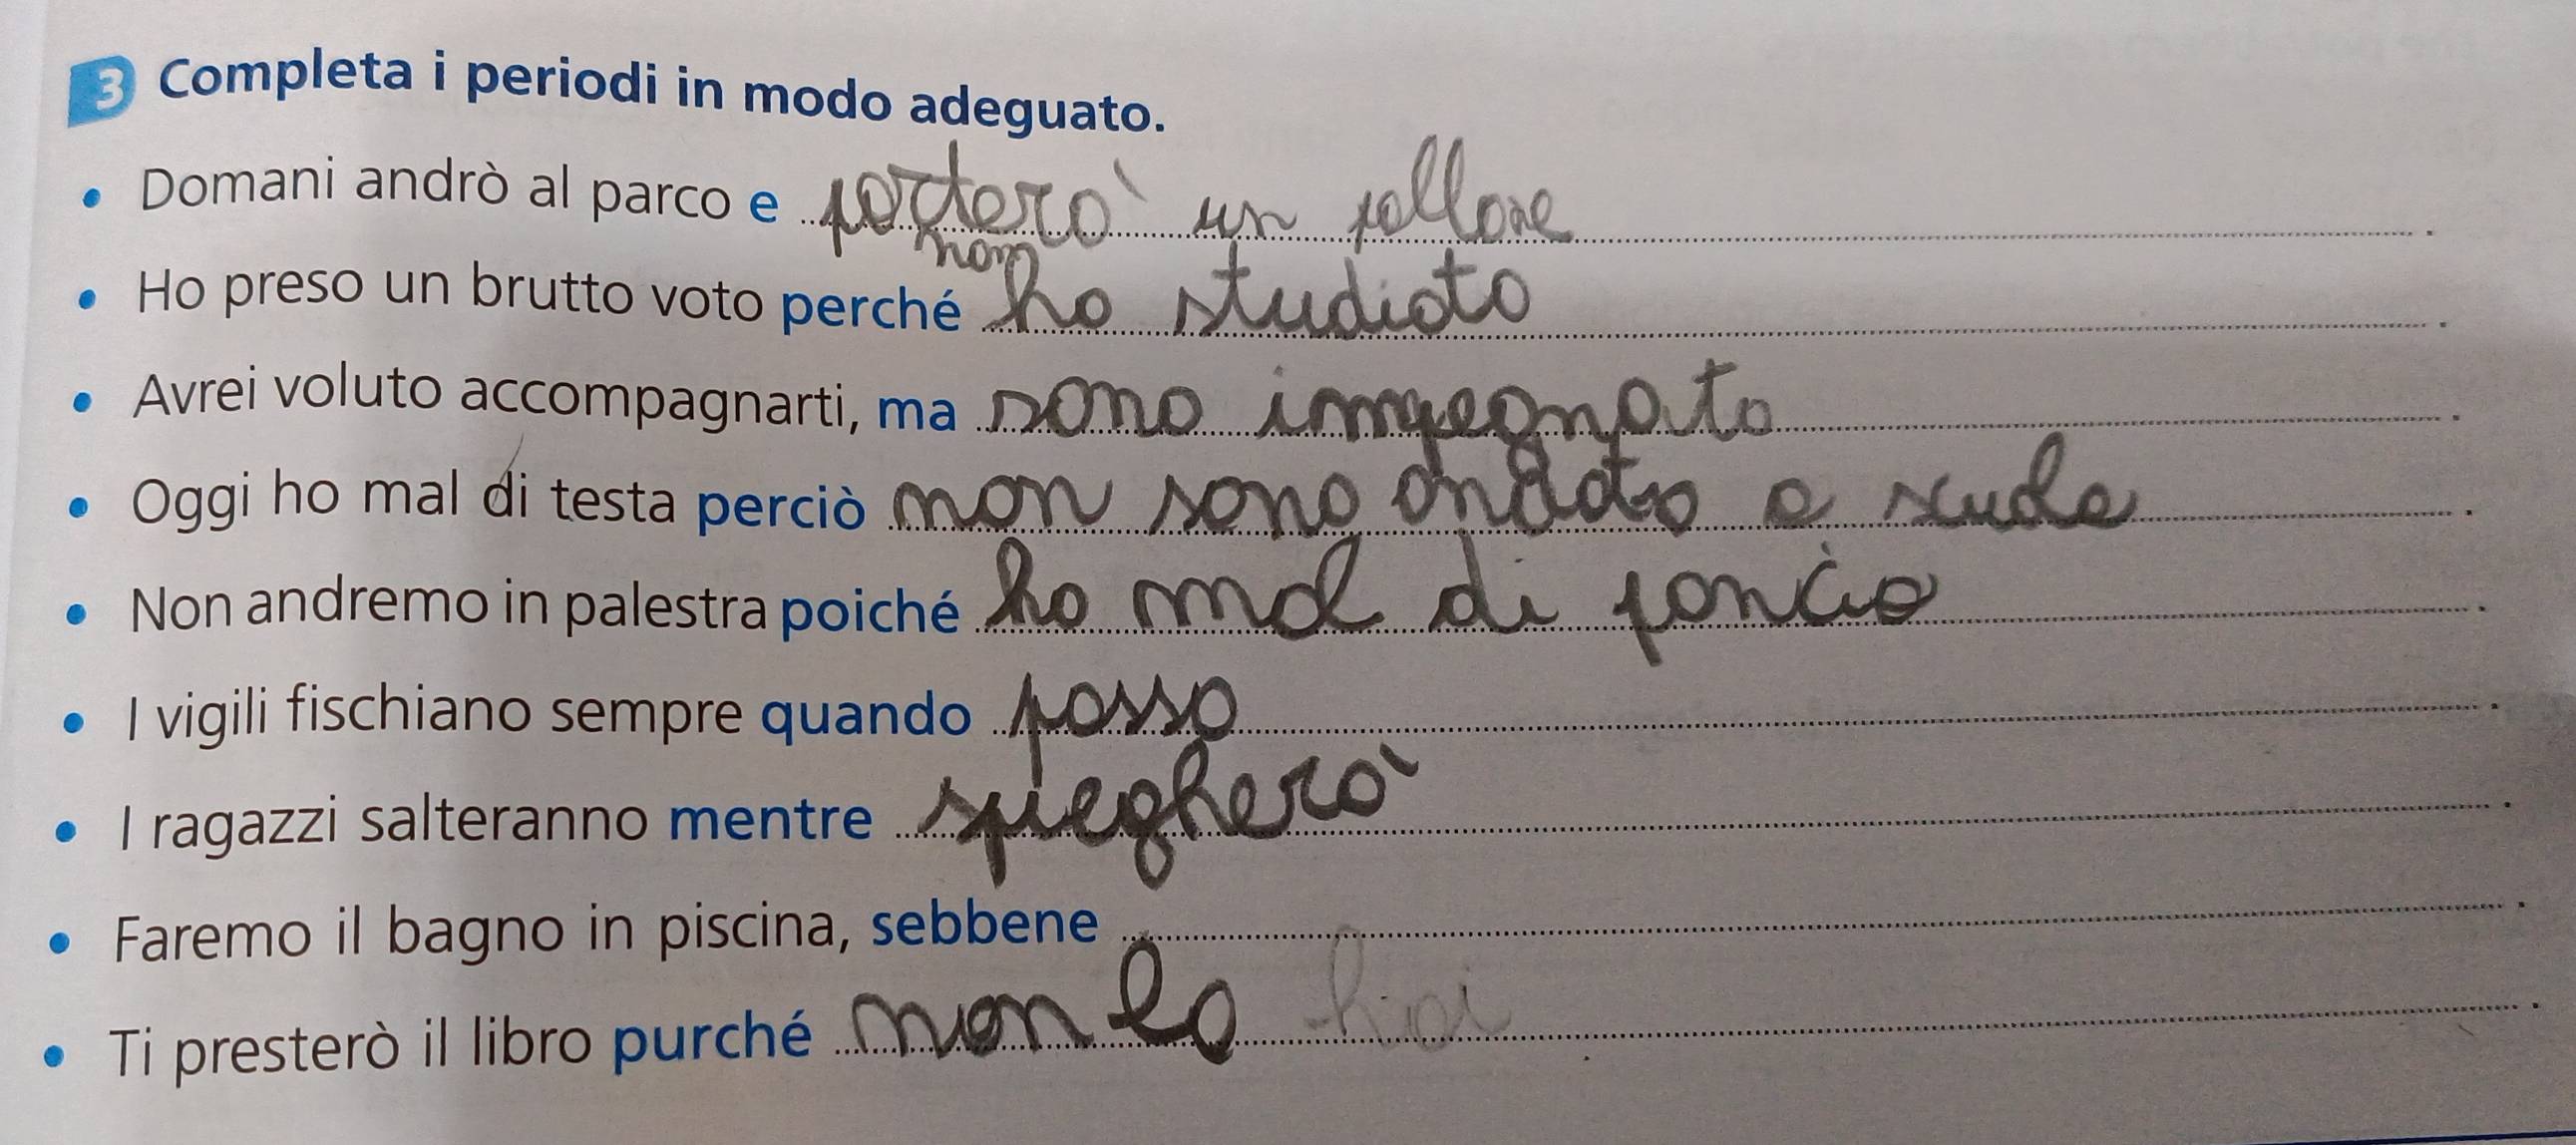 3 Completa i periodi in modo adeguato.
• Domani andrò al parco e porterò un pallone.
non
• Ho preso un brutto voto perché ho studiato.
• Avrei voluto accompagnarti, ma sono impegnato.
• Oggi ho mal di testa perciò non sono andato a scuola.
• Non andremo in palestra poiché ho mal di pancia.
• I vigili fischiano sempre quando passo.
• I ragazzi salteranno mentre spiegherò.
• Faremo il bagno in piscina, sebbene.
• Ti presterò il libro purché non lo.